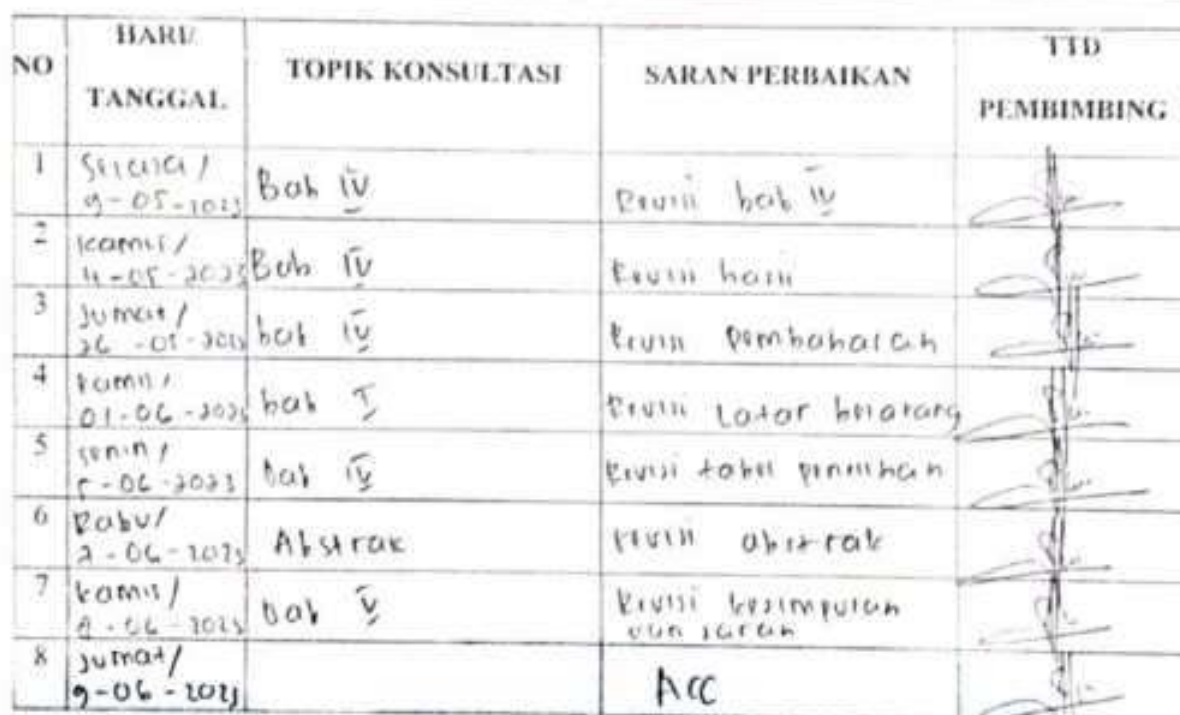 NO HARI/ TANGGAL TOPIK KONSULTASI SARAN PERBAIKAN TTD PEMBIMBING
1 Selasa/ 9-05-2023 Bab IV Revisi bab IV
2 Kamis/ 11-05-2023 Bab IV Revisi hasil
3 Jumat/ 26-05-2023 bab IV Revisi pembahasan
4 Kamis/ 01-06-2023 bab I Revisi Latar belakang
5 Senin/ 5-06-2023 bab IV Revisi tabel penelitian
6 Rabu/ -06-2023 Abstrak revisi abstrak
7 kamis/ -06-2023 bab V Revisi kesimpulan dan saran
8 Jumat/ 9-06-2023 ACC